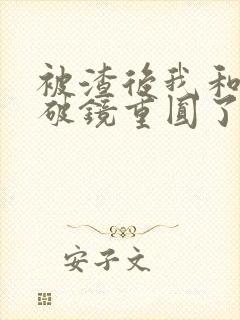 被渣后我和
破鏡重圓了
安子文